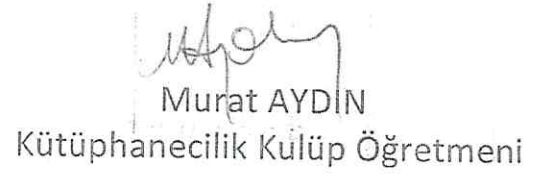 Murat AYDIN
Kütüphanecilik Kulüp Öğretmeni